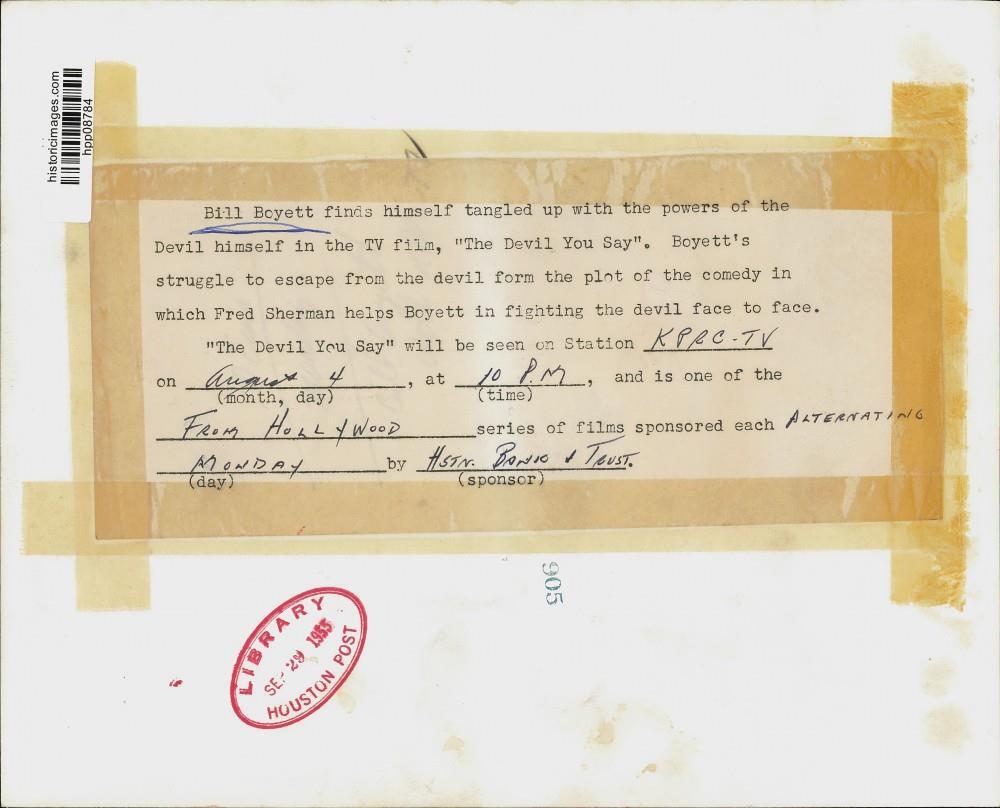 historicimages.com
hpp08784
Bill Boyett finds himself tangled up with the powers of the
Devil himself in the TV film, "The Devil You Say". Boyett's
struggle to escape from the devil form the plot of the comedy in
which Fred Sherman helps Boyett in fighting the devil face to face.
"The Devil You Say" will be seen on Station KPRC-TV
on August 4, at 10 P.M, and is one of the
(month, day) (time)
FROM HOLLYWOOD series of films sponsored each ALTERNATING
MONDAY by HSTN. BANK & TRUST.
(day) (sponsor)
905
LIBRARY
SEP 29 1953
HOUSTON POST